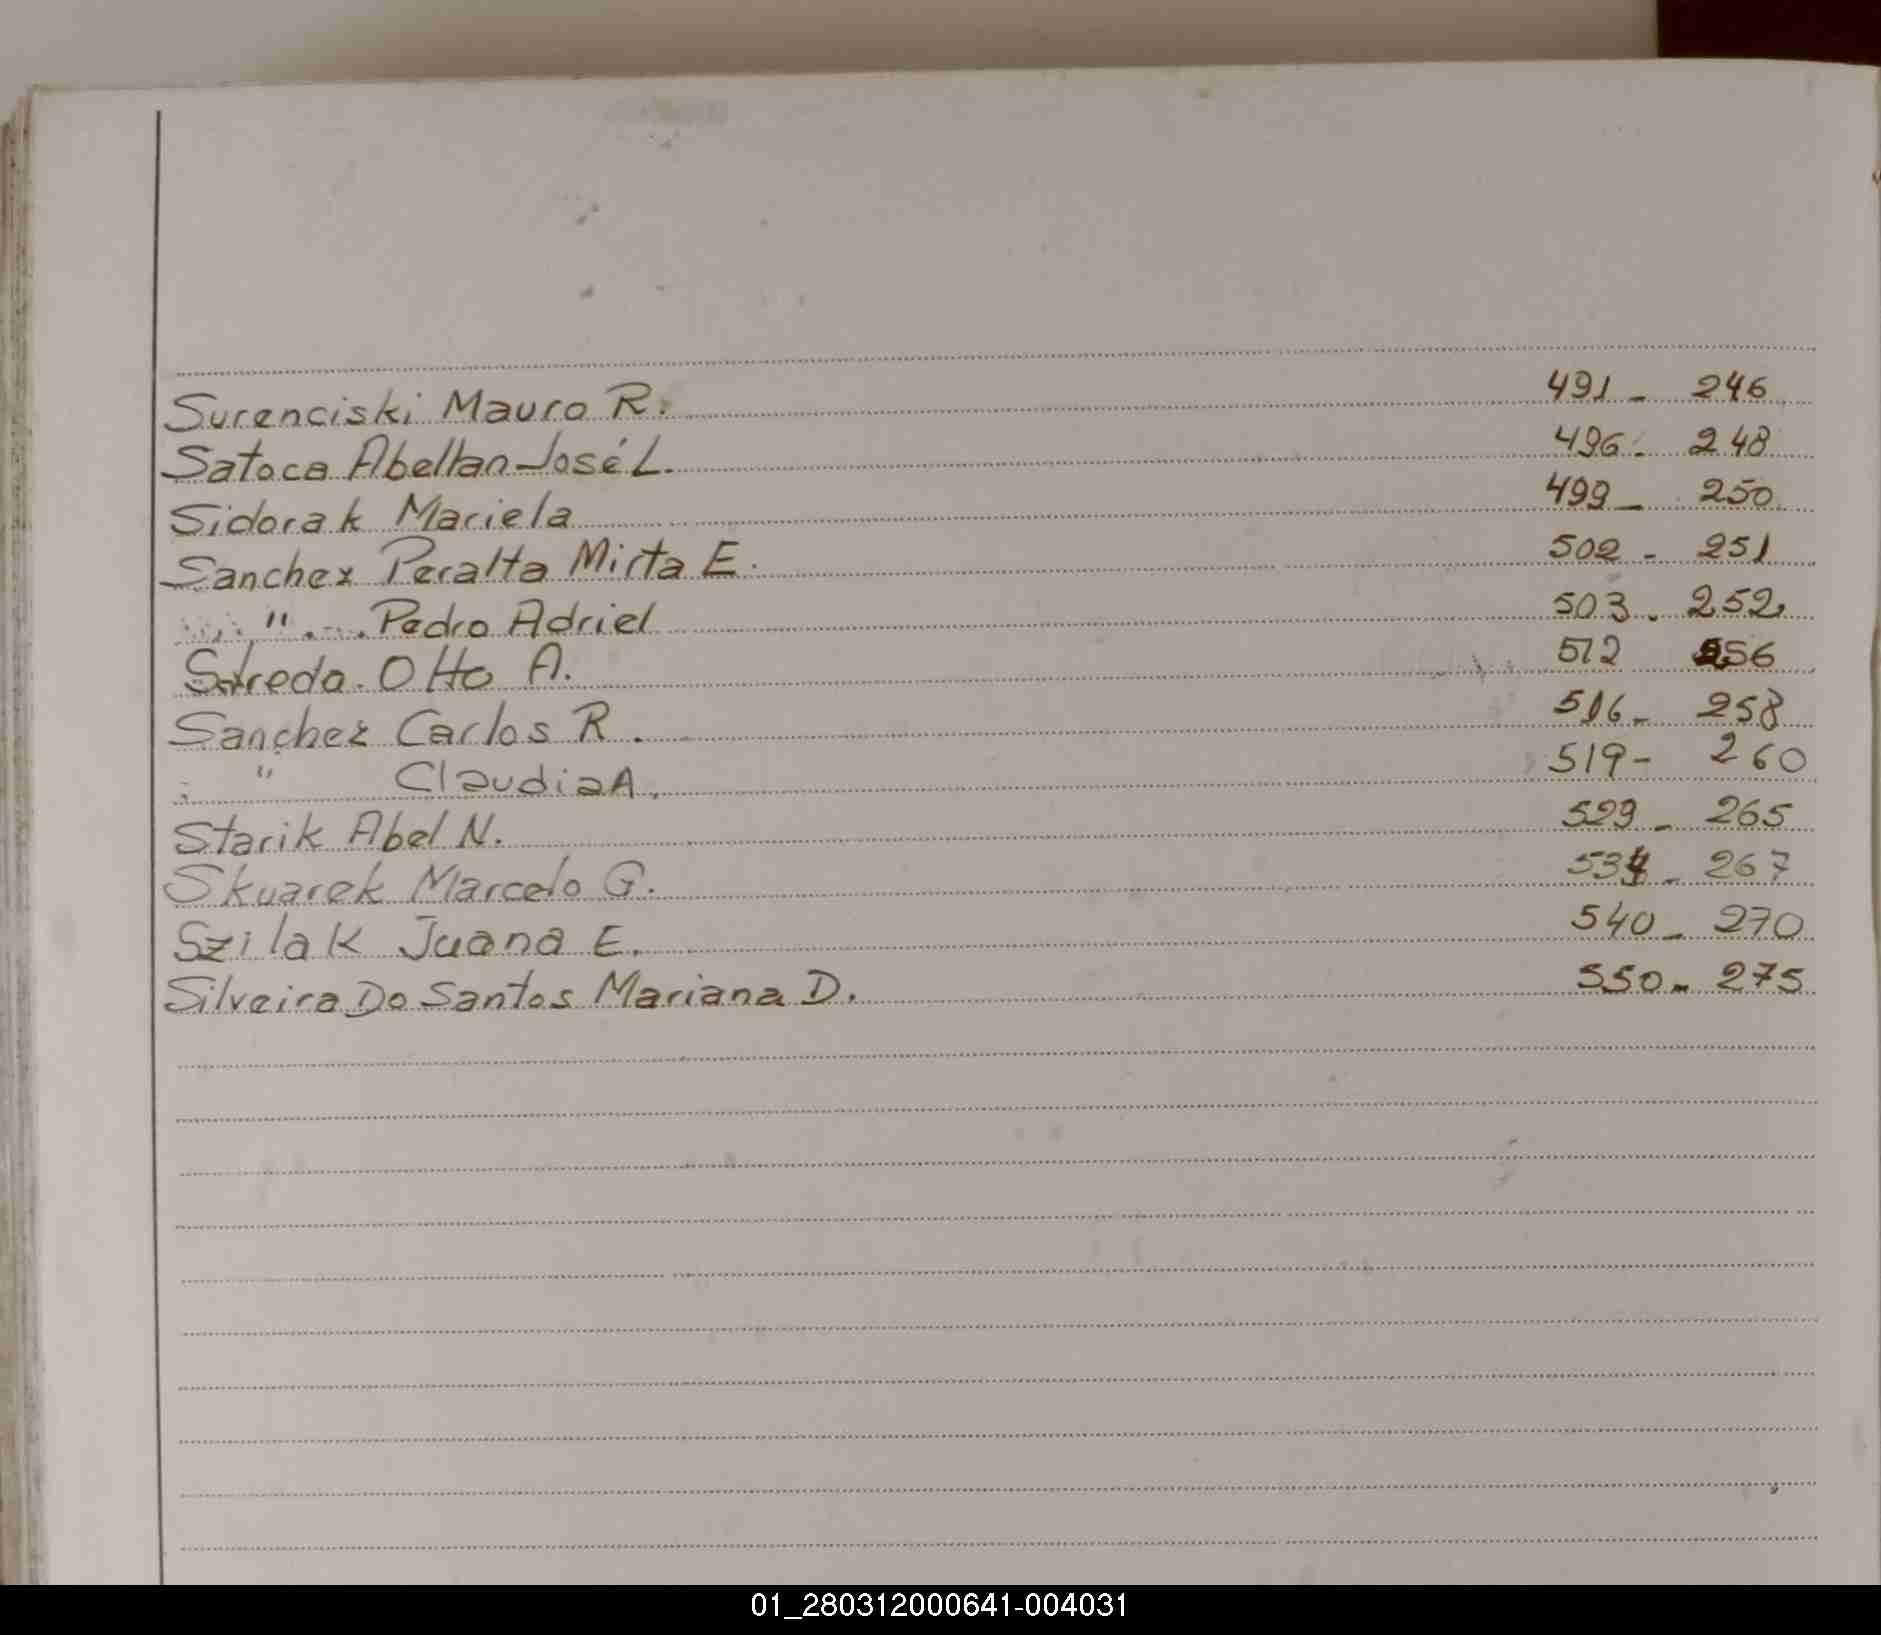 Surenciski Mauro R. 491 - 246
Satoca Abellan José L. 496 - 248
Sidorak Mariela 499 - 250
Sanchez Peralta Mirta E. 502 - 251
" Pedro Adriel 503 - 252
Otto A. 512 256
Sanchez Carlos R. 516 - 258
" Claudia A. 519 - 260
Starik Abel N. 529 - 265
Skuarek Marcelo G. 534 - 267
Szilak Juana E. 540 - 270
Silveira Do Santos Mariana D. 550 - 275
01_280312000641-004031